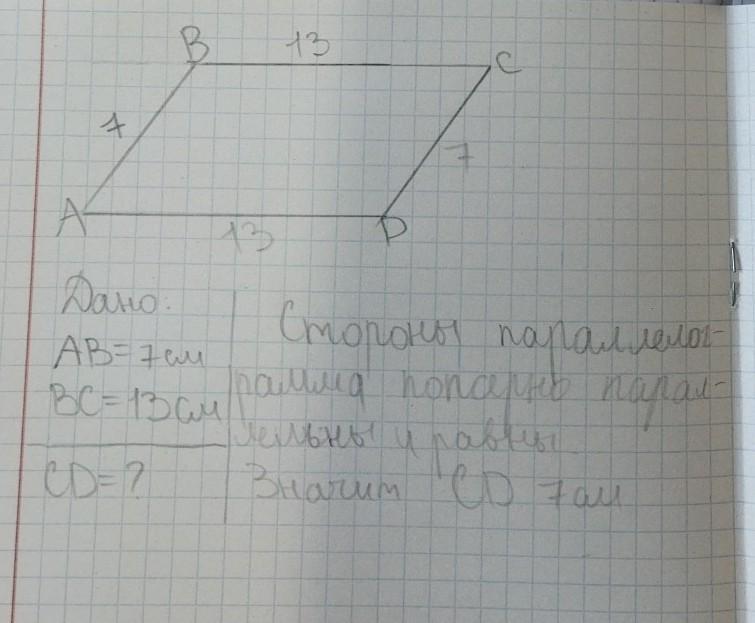 B 13 C
7
7
A 13 D
Дано:
AB=7см
BC=13см
CD=?
Стороны параллелог-
рамма попарно парал-
лельны и равны
Значит CD 7см